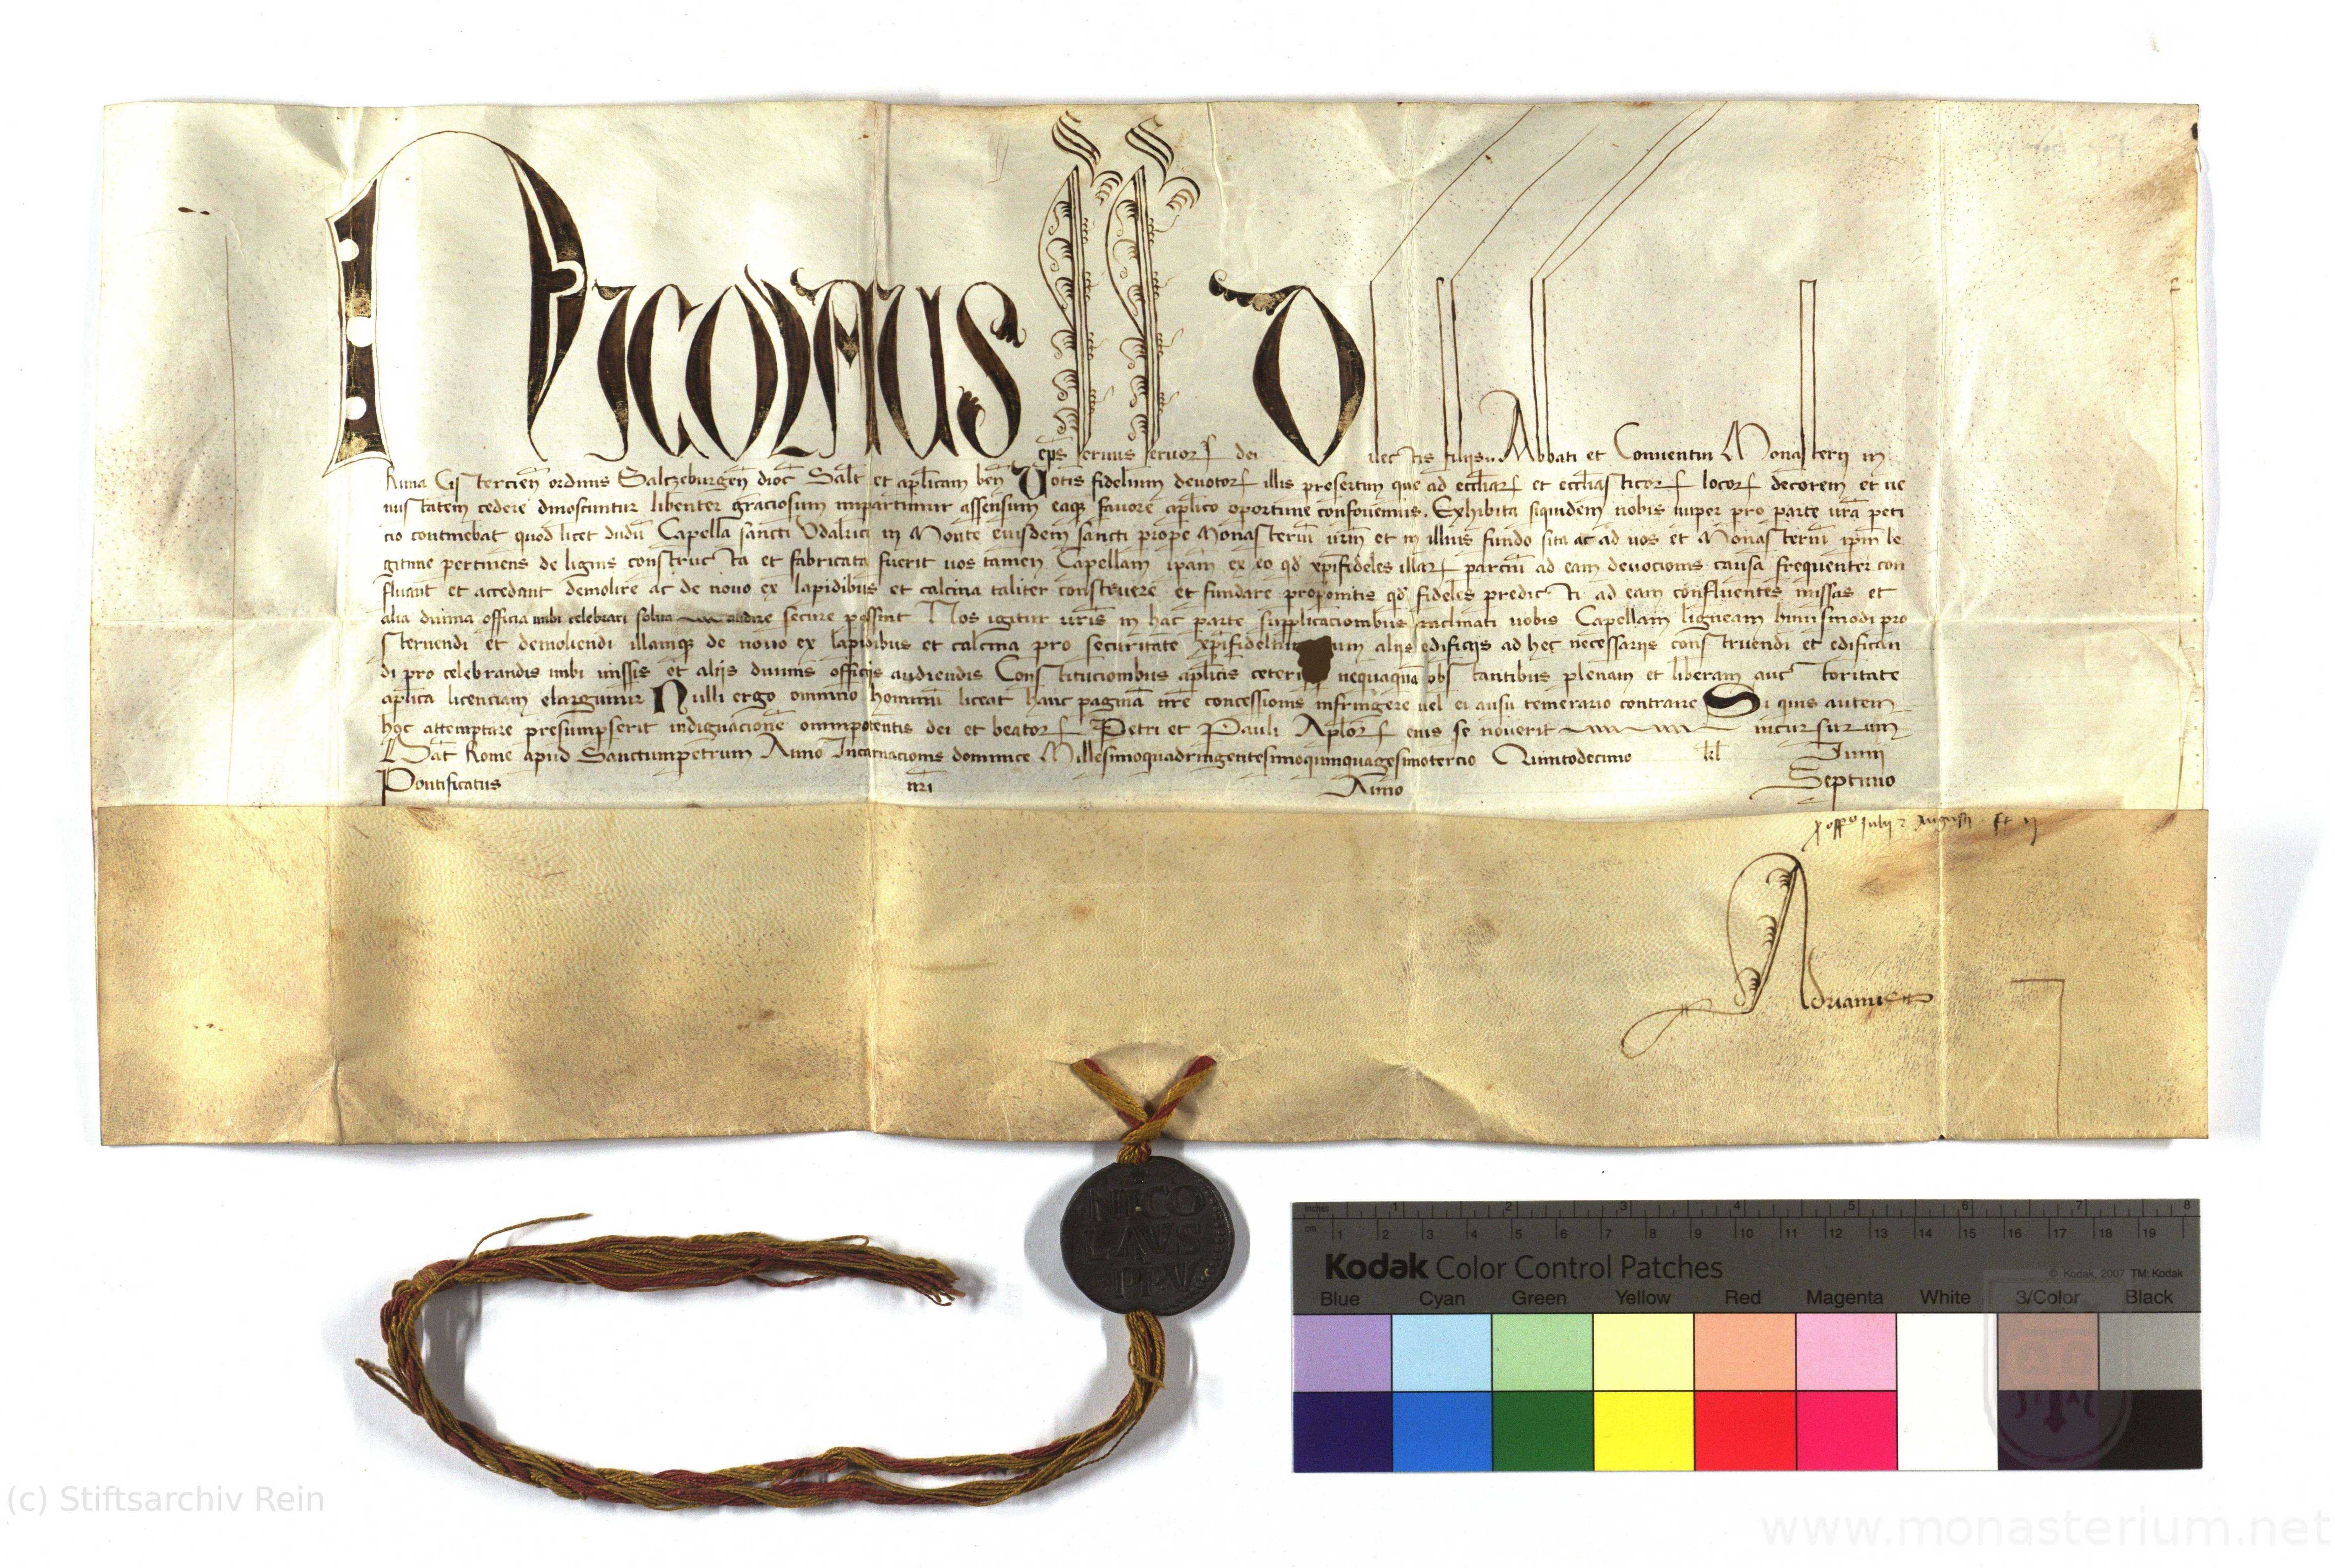 Nicolaus eps seruus seruor dei Dilectis filijs Abbati et Conuentui Monasterij in
Runa Cistercien ordinis Saltzeburgen dioc Salt et aplicam ben Uotis fidelium deuotor illis presertim que ad eccliar et eccliasticor locor decorem et ue
nustatem cedere dinoscuntur libenter graciosum impartimur assensum eaque fauore aplico oportune confouemus. Exhibita siquidem nobis nuper pro parte ura peti
cio continebat quod licet dudu Capella sancti Udalrici in Monte eiusdem sancti prope Monasteriu urm et in illius fundo sita ac ad uos et Monasteriu ipm le
gitime pertinens de lignis constructa et fabricata fuerit uos tamen Capellam ipam ex eo qd xpifideles illar parciu ad eam deuocionis causa frequenter con
fluant et accedant demolire ac de nouo ex lapidibus et calcina taliter construere et fundare proponitis qd fideles predicti ad eam confluentes missas et
alia diuina officia inibi celebrari secure possint Nos igitur uris in hac parte supplicacionibus inclinati uobis Capellam ligneam huiusmodi pro
sternendi et demoliendi illamque de nouo ex lapidibus et calcina pro securitate xpifidelium alijs edificijs ad hec necessarijs construendi et edifican
di pro celebrandis inibi missis et alijs diuinis officijs audiendis Constitucionibus aplicis ceteri nequaqua obstantibus plenam et liberam auctoritate
aplica licenciam elargimur Nulli ergo omnino hominu liceat hanc pagina nre concessionis infringere uel ei ausu temerario contraire Si quis autem
hoc attemptare presumpserit indignacione omnipotentis dei et beator Petri et Pauli Aplor eius se nouerit incursurum
Dat Rome apud Sanctumpetrum Anno Incarnacionis dominice Millesimoquadringentesimoquinquagesimotercio Quintodecimo kl Junij
Pontificatus nri Anno Septimo
Julij Augusti
Adrianus
NICO
LAVS
PP V
inches 1 2 3 4 5 6 7 8
cm 1 2 3 4 5 6 7 8 9 10 11 12 13 14 15 16 17 18 19
Kodak Color Control Patches
© Kodak, 2007 TM: Kodak
Blue Cyan Green Yellow Red Magenta White 3/Color Black
(c) Stiftsarchiv Rein
www.monasterium.net